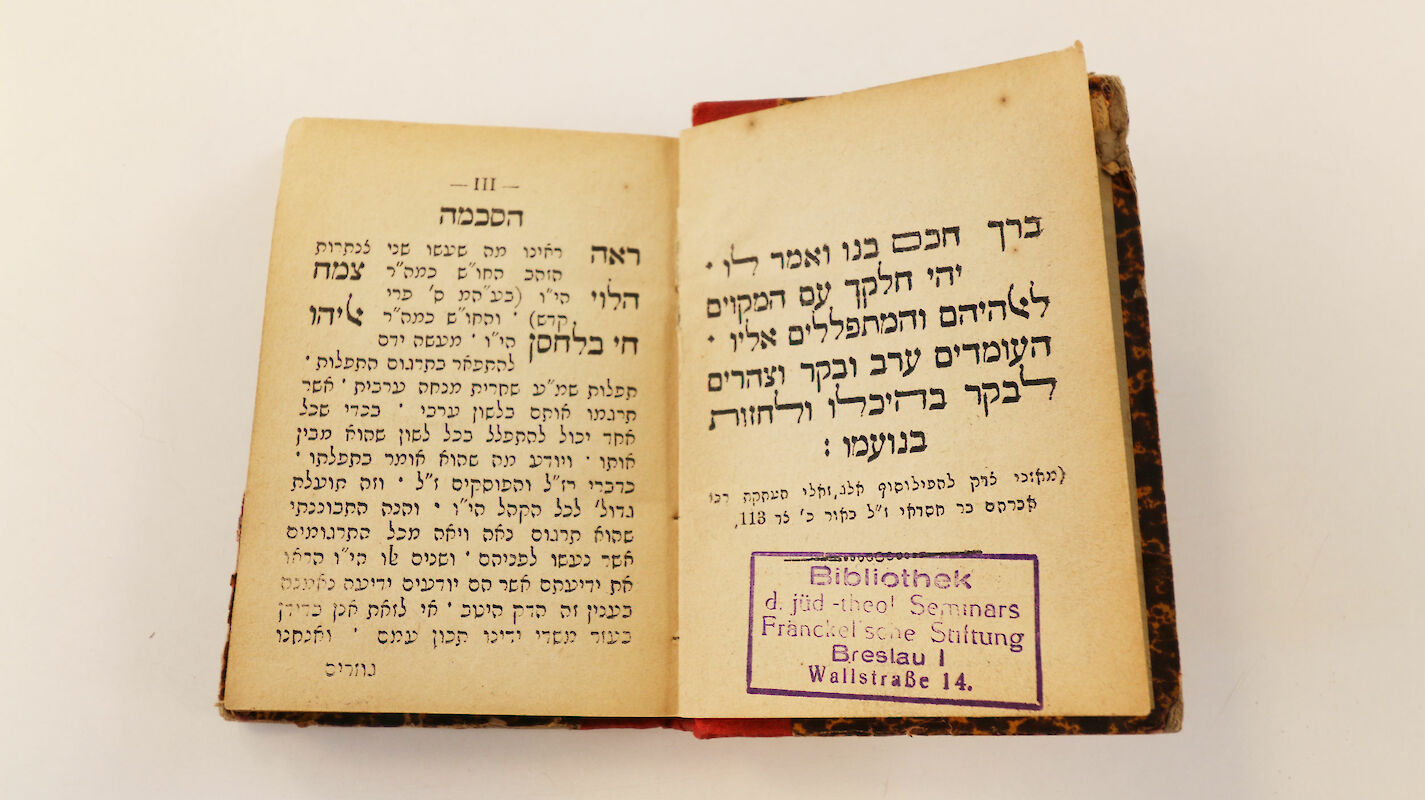 ברך חכם בנו ואמר לו ·
יהי חלקך עם המקוים
לאלהיהם והמתפללים אליו ·
העומדים ערב ובקר וצהרים
לבקר בהיכלו ולחזות
בנועמו :
(מאזני צדק להפילוסוף אלגזאלי העתקת רבי
אברהם בר חסדאי ז״ל צאור כ׳ צד 113,
Bibliothek
d. jüd-theol Seminars
Fränckel'sche Stiftung
Breslau I
Wallstraße 14.
— III —
הסכמה
ראה ראינו מה שעשו שני צנתרות
הזהב החו״ש כמה״ר צמח
הלוי הי״ו (בע״המ ס׳ פרי
קדש) · והחו״ש כמה״ר אליהו
חי בלחסן הי״ו · מעשה ידם
להתפאר בתרגום התפלות ·
תפלות שמ״ע שחרית מנחה ערבית · אשר
תרגמו אותם בלשון ערבי · בכדי שכל
אחד יכול להתפלל בכל לשון שהוא מבין
אותו · ויודע מה שהוא אומר בתפלתו ·
כדברי רז״ל והפוסקים ז״ל · וזה תועלת
גדול׳ לכל הקהל הי״ו · והנה התבוננתי
שהוא תרגום נאה ויאה מכל התרגומים
אשר נעשו לפניהם · ושנים אלו הי״ו הראו
את ידיעתם אשר הם יודעים ידיעה נאמנה
בענין זה הדק היטב · אי לזאת אנן בדידן
בעזר משדי ידינו תכון עמם · ואנחנו
גוזרים